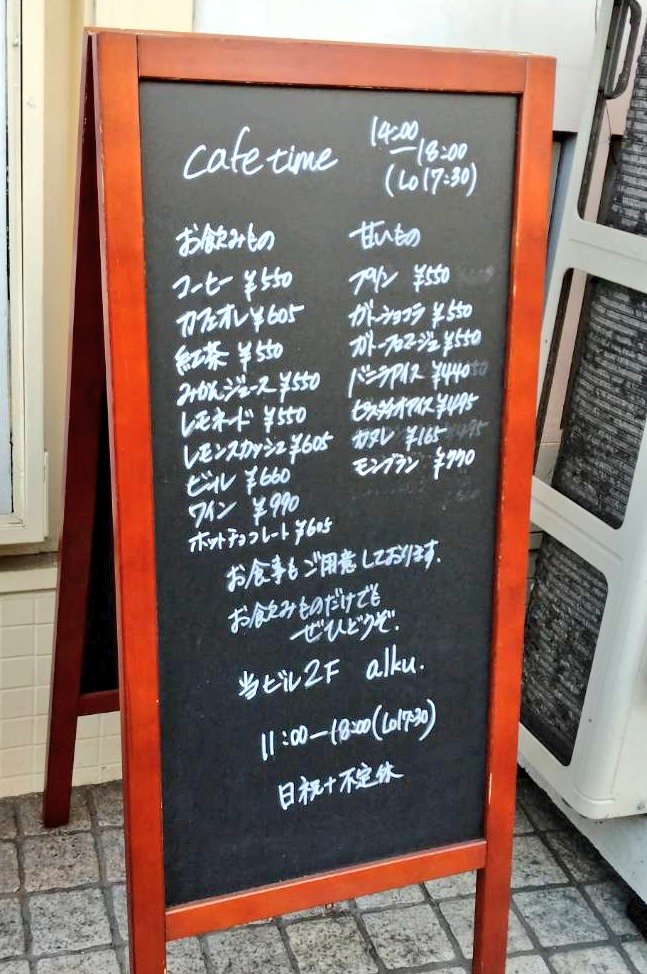 cafe time
14:00
—18:00
(Lo 17:30)
お飲みもの
コーヒー ¥550
カフェオレ ¥605
紅茶 ¥550
みかんジュース ¥550
レモネード ¥550
レモンスカッシュ ¥605
ビール ¥660
ワイン ¥990
ホットチョコレート ¥605
甘いもの
プリン ¥550
ガトーショコラ ¥550
ガトーフロマージュ ¥550
バニラアイス ¥440
ピスタチオアイス ¥495
カヌレ ¥165
モンブラン ¥770
お食事もご用意しております.
お飲みものだけでも
ぜひどうぞ.
当ビル2F alku.
11:00—18:00(Lo17:30)
日祝+不定休